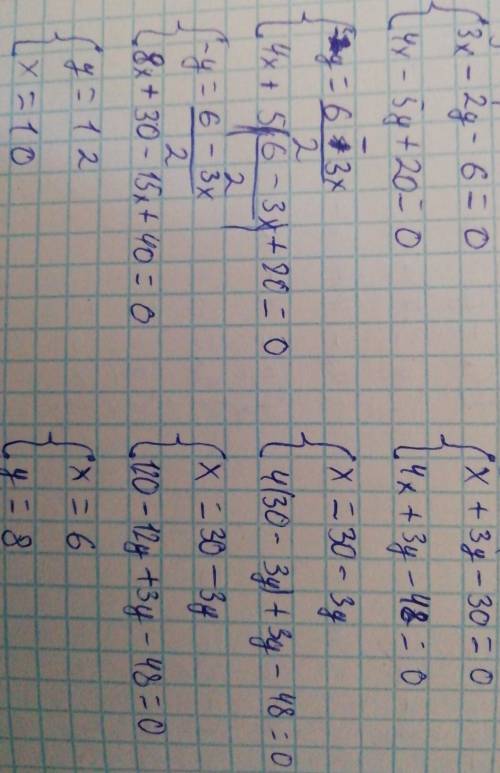 3x - 2y - 6 = 0
4x - 5y + 20 = 0
-y = 6 - 3x / 2
4x + 5(6 - 3x / 2) + 20 = 0
-y = 6 - 3x / 2
8x + 30 - 15x + 40 = 0
y = 12
x = 10
x + 3y - 30 = 0
4x + 3y - 48 = 0
x = 30 - 3y
4(30 - 3y) + 3y - 48 = 0
x = 30 - 3y
120 - 12y + 3y - 48 = 0
x = 6
y = 8